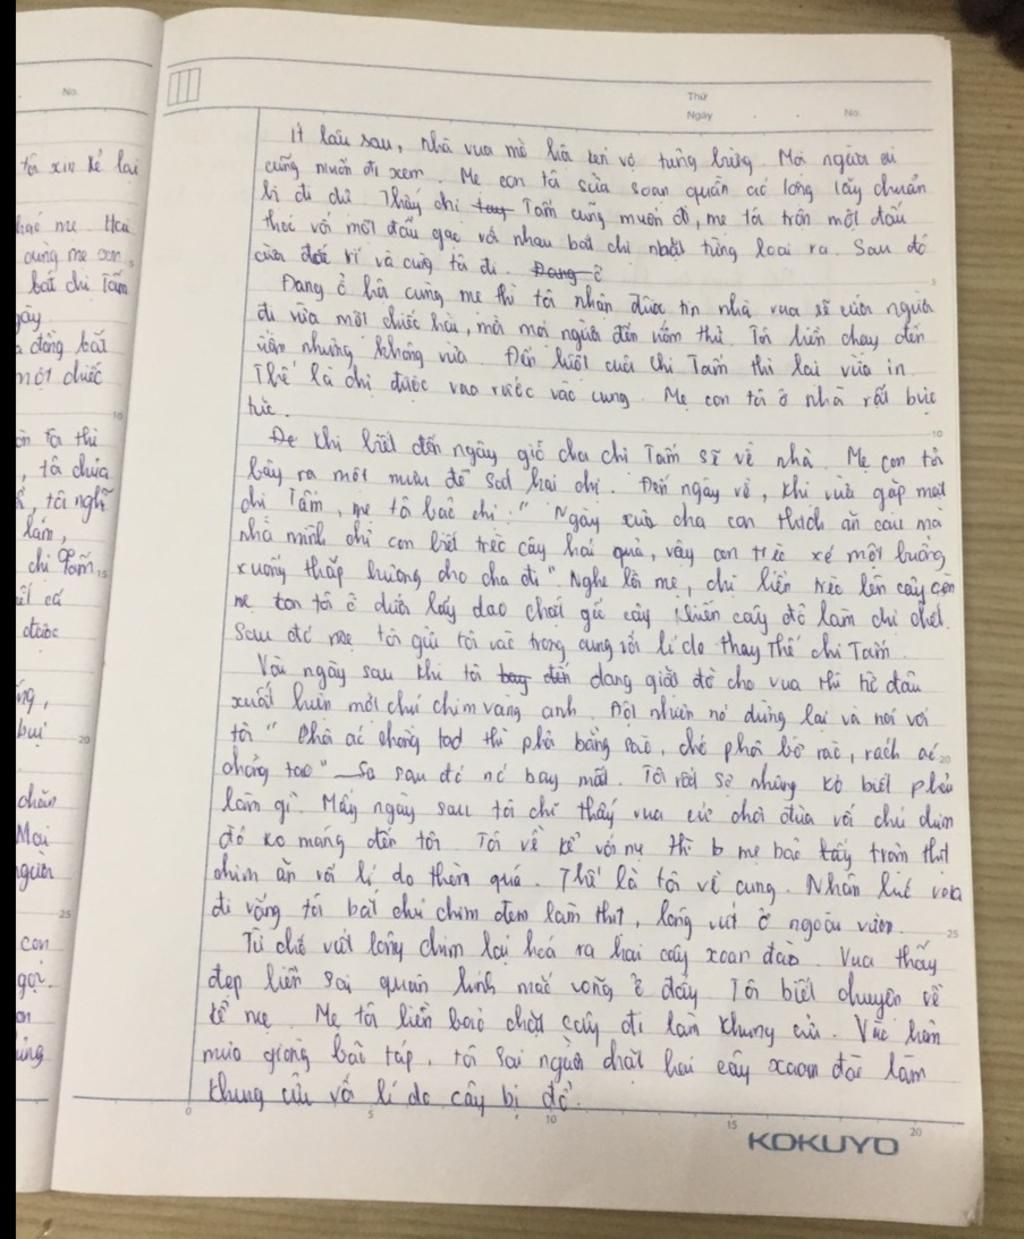 No.
tôi xin kể lại
mẹ Hai
cùng mẹ con
bắt chị Tấm
gây
đồng bắt
một chiếc
10
ta thì
, tôi chưa
, tôi nghĩ
lắm,
chị Tấm,
15
cá
được
bụi
20
chăn
Mai
người
25
con
gọi.
Thứ
Ngày
No.
ít lâu sau, nhà vua mở hội tưng bừng. Mọi người ai
cũng muốn đi xem. Mẹ con tôi sửa soạn quần áo lộng lẫy chuẩn
bị đi dự. Thấy chị Tấm cũng muốn đi, mẹ tôi trộn một đấu
thóc với một đấu gạo với nhau bắt chị nhặt từng loại ra. Sau đó
và cùng tôi đi. Đang ở
5
Đang ở hội cùng mẹ thì tôi nhận được tin nhà vua sẽ cưới người
đi vừa một chiếc hài, mời mọi người đến ướm thử. Tôi liền chạy đến
ướm nhưng không vừa. Đến lượt cuối chị Tấm thì lại vừa in.
Thế là chị được vua rước vào cung. Mẹ con tôi ở nhà rất bực
tức.
10
Để khi biết đến ngày giỗ cha chị Tấm sẽ về nhà. Mẹ con tôi
bày ra một mưu để hại chị. Đến ngày về, khi vừa gặp mặt
chị Tấm, mẹ tôi bảo chị: " Ngày xưa cha con thích ăn cau mà
nhà mình chỉ con biết trèo cây hái quả, vậy con trèo xé một buồng
xuống thắp hương cho cha đi". Nghe lời mẹ, chị liền trèo lên cây còn
mẹ con tôi ở dưới lấy dao chặt gốc cây khiến cây đổ làm chị chết.
Sau đó mẹ tôi gửi tôi vào trong cung với lí do thay thế chị Tấm.
Vài ngày sau khi tôi đang giặt đồ cho vua thì từ đâu
xuất hiện một chú chim vàng anh. Đột nhiên nó dừng lại và nói với
tôi " Phơi áo chồng tao thì phơi bằng sào, chớ phơi bờ rào, rách áo
20
chồng tao" sau đó nó bay mất. Tôi rất sợ nhưng ko biết phải
làm gì. Mấy ngày sau tôi chỉ thấy vua cứ chơi đùa với chú chim
đó ko màng đến tôi. Tôi về kể với mẹ thì mẹ bảo lấy trộm thịt
chim ăn với lí do thèm quá. Thế là tôi về cung. Nhân lúc vua
đi vắng tôi bắt chú chim đem làm thịt, lông vứt ở ngoài vườn.
25
Từ chỗ vứt lông chim lại hoá ra hai cây xoan đào. Vua thấy
đẹp liền sai quân lính mắc võng ở đấy. Tôi biết chuyện về
kể mẹ. Mẹ tôi liền bảo chặt cây đi làm khung cửi. Vào hôm
mưa giông bão táp, tôi sai người chặt hai cây xoan đào làm
khung cửi với lí do cây bị đổ.
0 5 10 15 20
KOKUYO